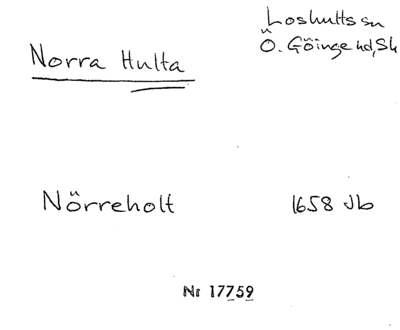 Norra Hulta
Loshults sn
Ö. Göinge hd, Sk
Nörreholt
1658 Jb
Nr 17759